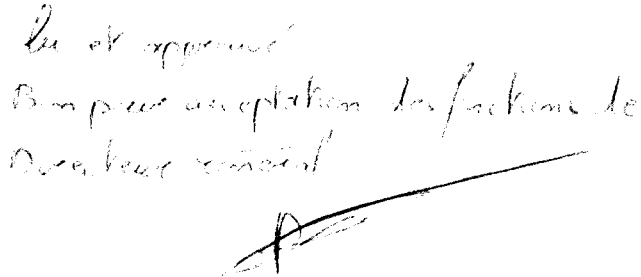 lu et approuvé
Bon pour acceptation des fonctions de
Directeur